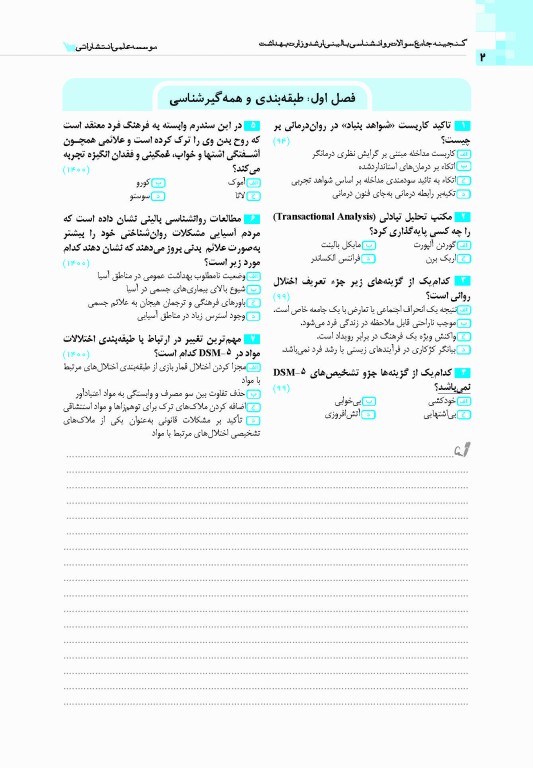 گنجینه جامع سوالات روانشناسی بالینی ارشد وزارت بهداشت
موسسه علمی انتشاراتی
۲
فصل اول: طبقه‌بندی و همه‌گیرشناسی
۱ تاکید کاربست «شواهد بنیاد» در روان‌درمانی بر
چیست؟ (۹۴)
الف کاربست مداخله مبتنی بر گرایش نظری درمانگر
ب اتکاء بر درمان‌های استانداردشده
ج اتکاء به تائید سودمندی مداخله بر اساس شواهد تجربی
د تکیه‌بر رابطه درمانی به‌جای فنون درمانی
۲ مکتب تحلیل تبادلی (Transactional Analysis)
را چه کسی پایه‌گذاری کرد؟
الف گوردن آلپورت ب مایکل بالینت
ج اریک برن د فرانتس الکساندر
۳ کدام‌یک از گزینه‌های زیر جزء تعریف اختلال
روانی است؟ (۹۹)
الف نتیجه یک انحراف اجتماعی یا تعارض با یک جامعه خاص است.
ب موجب ناراحتی قابل ملاحظه در زندگی فرد می‌شود.
ج واکنش ویژه یک فرهنگ در برابر رویداد است.
د بیانگر کژکاری در فرآیندهای زیستی یا رشد فرد نمی‌باشد.
۴ کدام‌یک از گزینه‌ها جزو تشخیص‌های DSM-۵
نمی‌باشد؟ (۹۹)
الف خودکشی ب بی‌خوابی
ج بی‌اشتهایی د آتش‌افروزی
۵ در این سندرم وابسته به فرهنگ فرد معتقد است
که روح بدن وی را ترک کرده است و علائمی همچون
آشفتگی اشتها و خواب، غمگینی و فقدان انگیزه تجربه
می‌کند؟ (۱۴۰۰)
الف آموک ب کورو
ج لاتا د سوستو
۶ مطالعات روانشناسی بالینی نشان داده است که
مردم آسیایی مشکلات روان‌شناختی خود را بیشتر
به‌صورت علائم بدنی بروز می‌دهند که نشان دهند کدام
مورد زیر است؟ (۱۴۰۰)
الف وضعیت نامطلوب بهداشت عمومی در مناطق آسیا
ب شیوع بالای بیماری‌های جسمی در آسیا
ج باورهای فرهنگی و ترجمان هیجان به علائم جسمی
د وجود استرس زیاد در مناطق آسیایی
۷ مهم‌ترین تغییر در ارتباط با طبقه‌بندی اختلالات
مواد در DSM-۵ کدام است؟ (۱۴۰۰)
الف مجزا کردن اختلال قمار بازی از طبقه‌بندی اختلال‌های مرتبط
با مواد
ب حذف تفاوت بین سو مصرف و وابستگی به مواد اعتیادآور
ج اضافه کردن ملاک‌های ترک برای توهم‌زاها و مواد استنشاقی
د تأکید بر مشکلات قانونی به‌عنوان یکی از ملاک‌های
تشخیصی اختلال‌های مرتبط با مواد